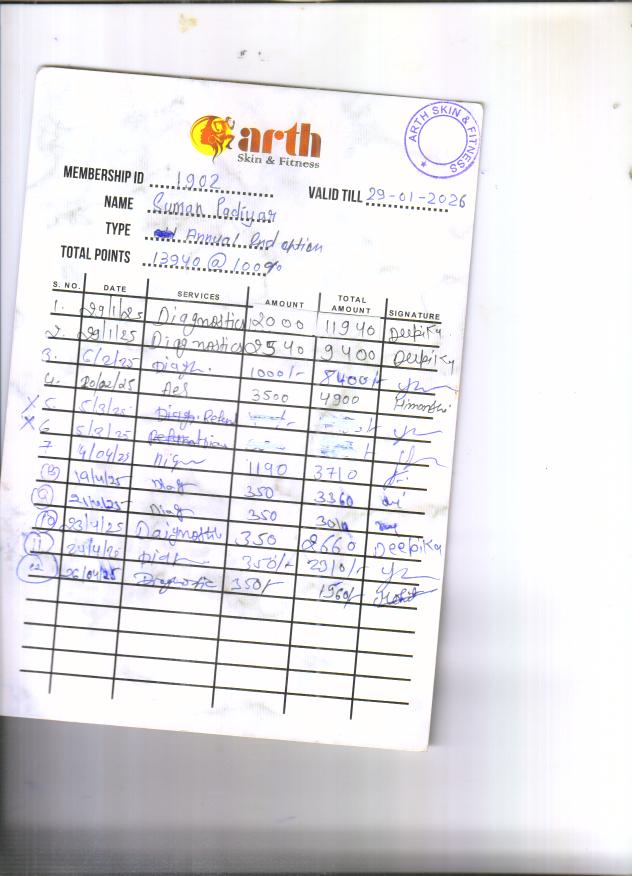 arth
Skin & Fitness
ARTH SKIN & FITNESS
MEMBERSHIP ID 1902
VALID TILL 29-01-2026
NAME Suman Padiyar
TYPE Annual 2nd option
TOTAL POINTS 13940 @ 100%
S. NO. DATE SERVICES AMOUNT TOTAL AMOUNT SIGNATURE
1. 29/1/25 Diagnostics 2000 11940 Deepika
2. 29/1/25 Diagnostics 2540 9400 Deepika
3. 6/2/25 1000/- 8400/-
4. 20/02/25 3500 4900 Himanshi
X 5
X 6 5/3/25
7 4/04/25 1190 3710
19/4/25 350 3360
9 350
10 23/4/25 Daignostic 350 2660 Deepika
11 24/4/25 350/- 2310/-
12 26/04/25 Diagnostic 350/- 1960/- Mohit